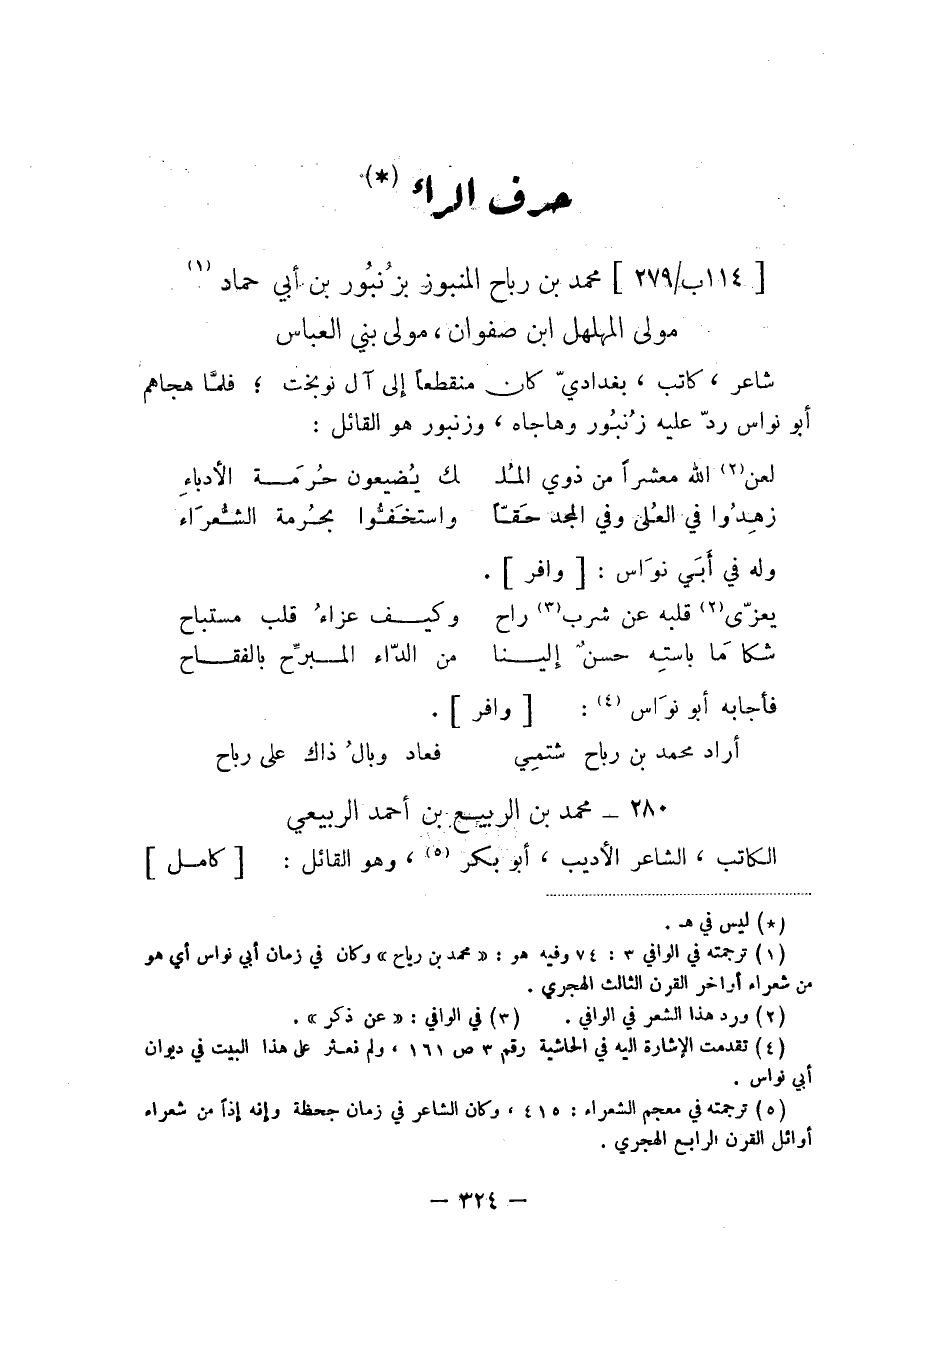 حرف الراء (*)
[ ١١٤ب/٢٧٩ ] محمد بن رباح المنبوز بزُنبُور بن أبي حماد (١)
مولى المهلهل ابن صفوان ، مولى بني العباس
شاعر ، كاتب ، بغداديّ كان منقطعاً إلى آل نوبخت ؛ فلمَّا هجاهم
أبو نواس ردّ عليه زُنبُور وهاجاه ، وزنبور هو القائل :
لعن(٢) الله معشراً من ذوي المُلـ    ـك يُضيعون حُرمَة الأدباءِ
زهِدُوا في العُلى وفي المجد حَقّاً    واستخَفُّوا بحُرمة الشُّعرَاء
وله في أَبَي نوَاس : [ وافر ] .
يعزّى(٢) قلبه عن شرب(٣) راح    وكيف عزاءُ قلب مستباح
شكا مَا باستِه حسنٌ إلينا    من الدّاء المبرِّح بالفقاح
فأجابه أبو نوَاس (٤) : [ وافر ] .
أراد محمد بن رباح شتمِي    فعاد وبالُ ذاك على رباح
٢٨٠ ـ محمد بن الربيع بن أحمد الربيعي
الكاتب ، الشاعر الأديب ، أبو بكر (٥) ، وهو القائل : [ كامل ]
(*) ليس في هـ .
(١) ترجمته في الوافي ٣ : ٧٤ وفيه هو : « محمد بن رياح » وكان في زمان أبي نواس أي هو
من شعراء أواخر القرن الثالث الهجري .
(٢) ورد هذا الشعر في الوافي . (٣) في الوافي : « عن ذكر » .
(٤) تقدمت الإشارة اليه في الحاشية رقم ٣ ص ١٦١ ، ولم نعثر على هذا البيت في ديوان
أبي نواس .
(٥) ترجمته في معجم الشعراء : ٤١٥ ، وكان الشاعر في زمان جحظة وإنه إذاً من شعراء
أوائل القرن الرابع الهجري .
— ٣٢٤ —